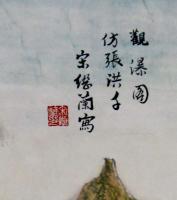 觀瀑圖
仿張洪千
宋繼蘭寫